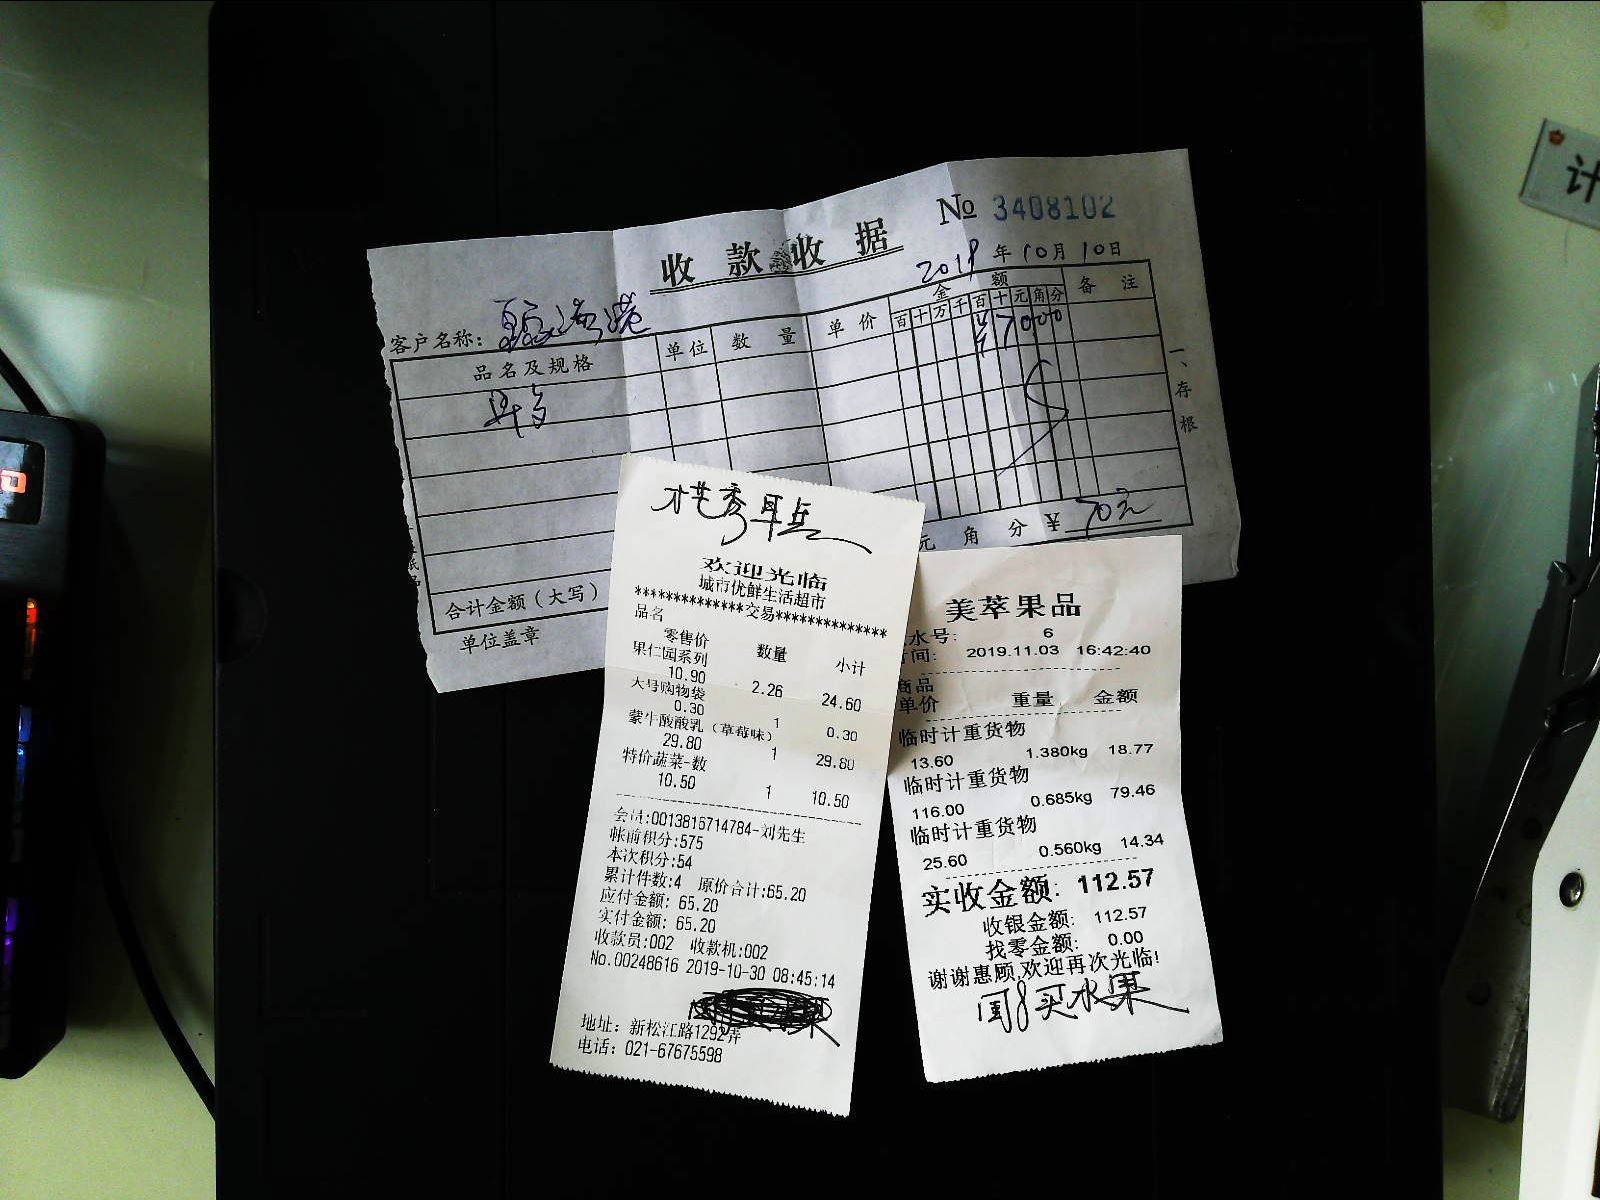 收款收据
No 3408102
2019年10月10日
客户名称：
品名及规格 单位 数量 单价 金额 备注
百十万千百十元角分
¥7000
一、存根
元角分¥ 70元
合计金额（大写）
单位盖章
欢迎光临
城市优鲜生活超市
**************交易**************
品名
零售价 数量 小计
果仁园系列
10.90 2.26 24.60
大号购物袋
0.30 1 0.30
蒙牛酸酸乳（草莓味）
29.80 1 29.80
特价蔬菜-数
10.50 1 10.50
会员:0013816714784-刘先生
帐前积分:575
本次积分:54
累计件数:4 原价合计:65.20
应付金额: 65.20
实付金额: 65.20
收款员:002 收款机:002
No.00248616 2019-10-30 08:45:14
地址: 新松江路1292弄
电话: 021-67675598
美萃果品
水号: 6
间: 2019.11.03 16:42:40
商品
单价 重量 金额
临时计重货物
13.60 1.380kg 18.77
临时计重货物
116.00 0.685kg 79.46
临时计重货物
25.60 0.560kg 14.34
实收金额: 112.57
收银金额: 112.57
找零金额: 0.00
谢谢惠顾,欢迎再次光临!
买水果
计